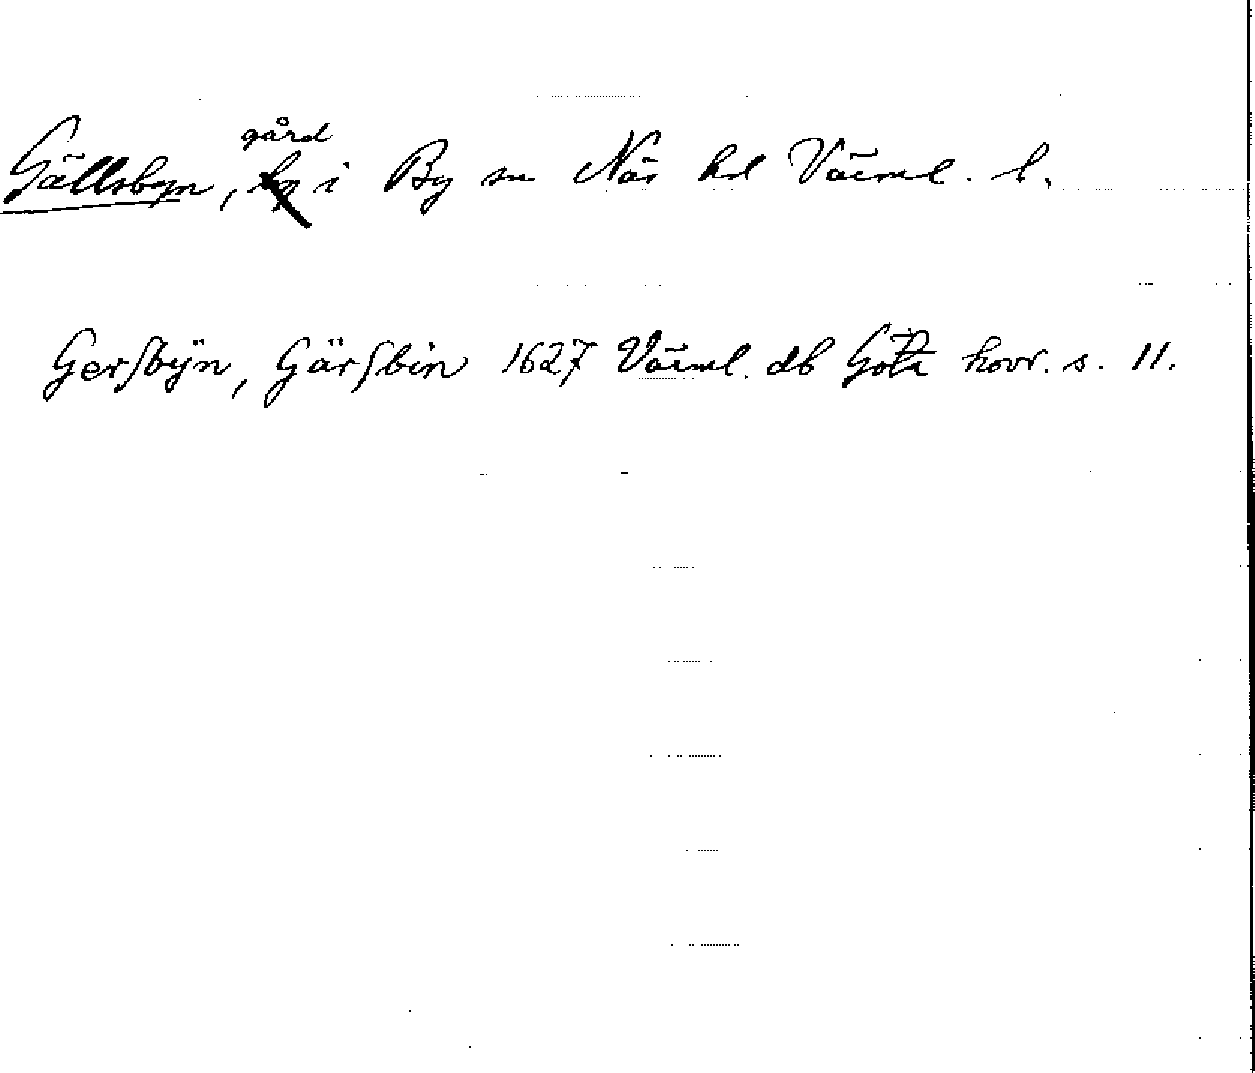 Gällsbyn, gård i By sn Näs hd Värml. l.
Gerſbÿn, Gärſbin 1627 Värml. db Göta hovr. s. 11.